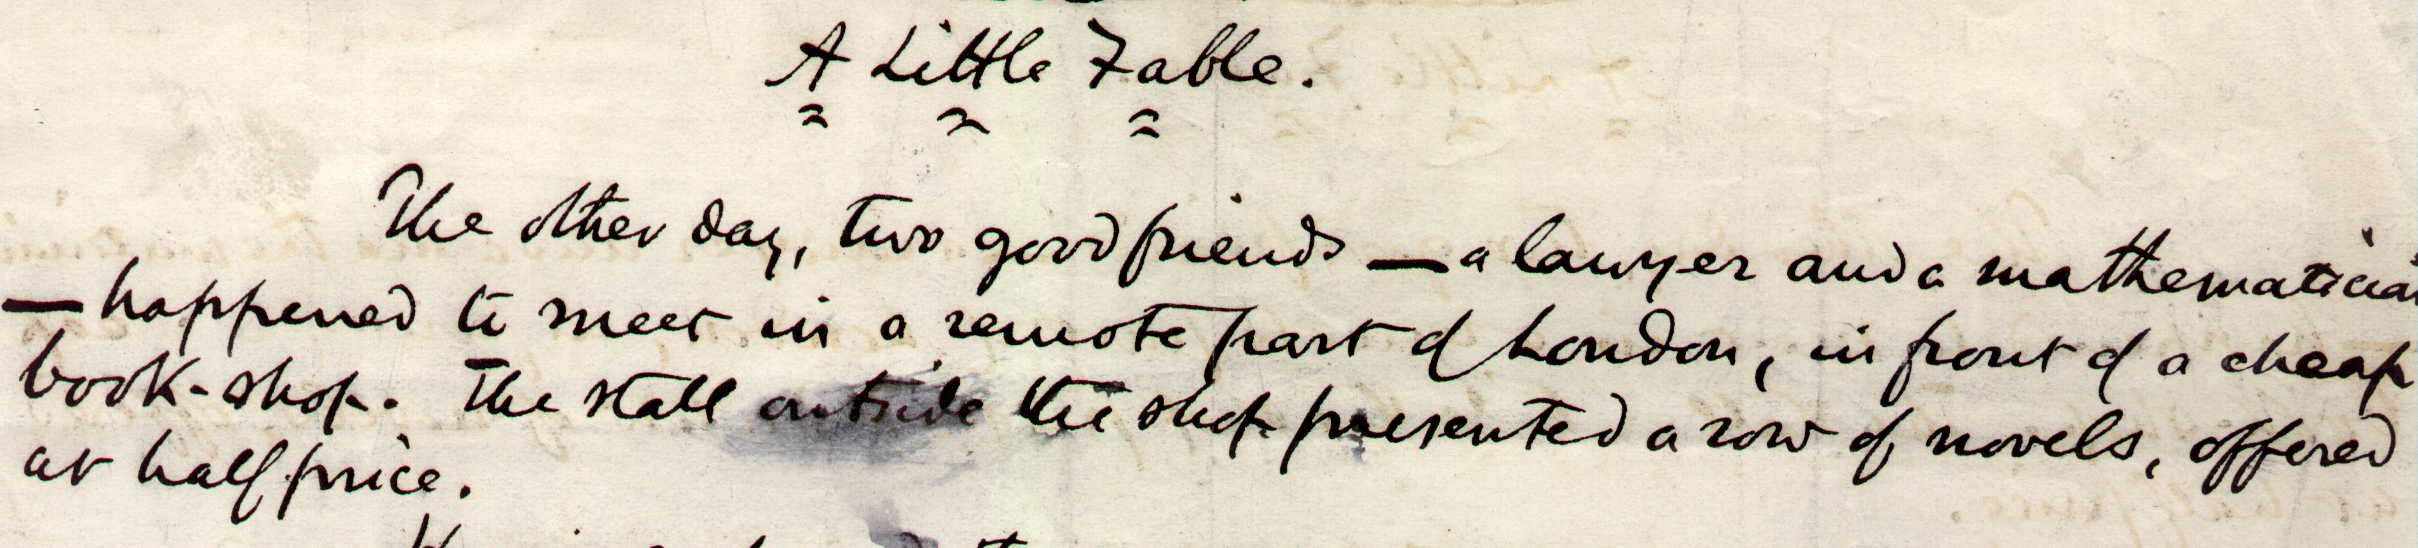 A Little Fable.
The other day, two good friends — a lawyer and a mathematician
— happened to meet in a remote part of London, in front of a cheap
book-shop. The stall outside the shop presented a row of novels, offered
at half price.